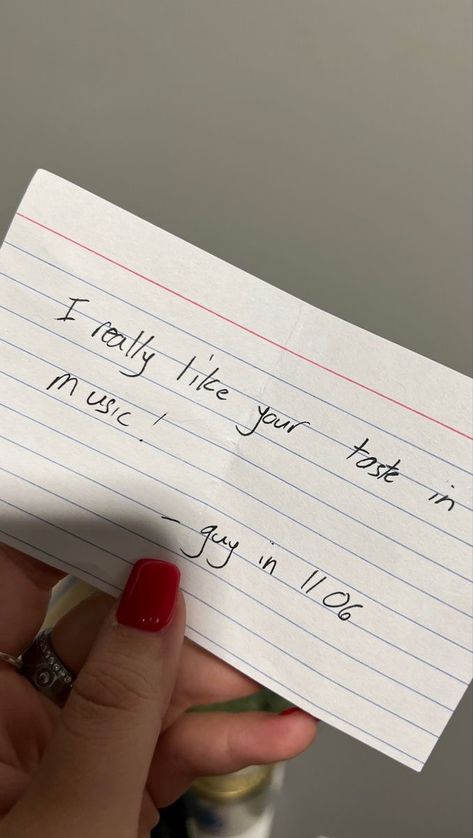 I really like your taste in
music!
- guy in 1106